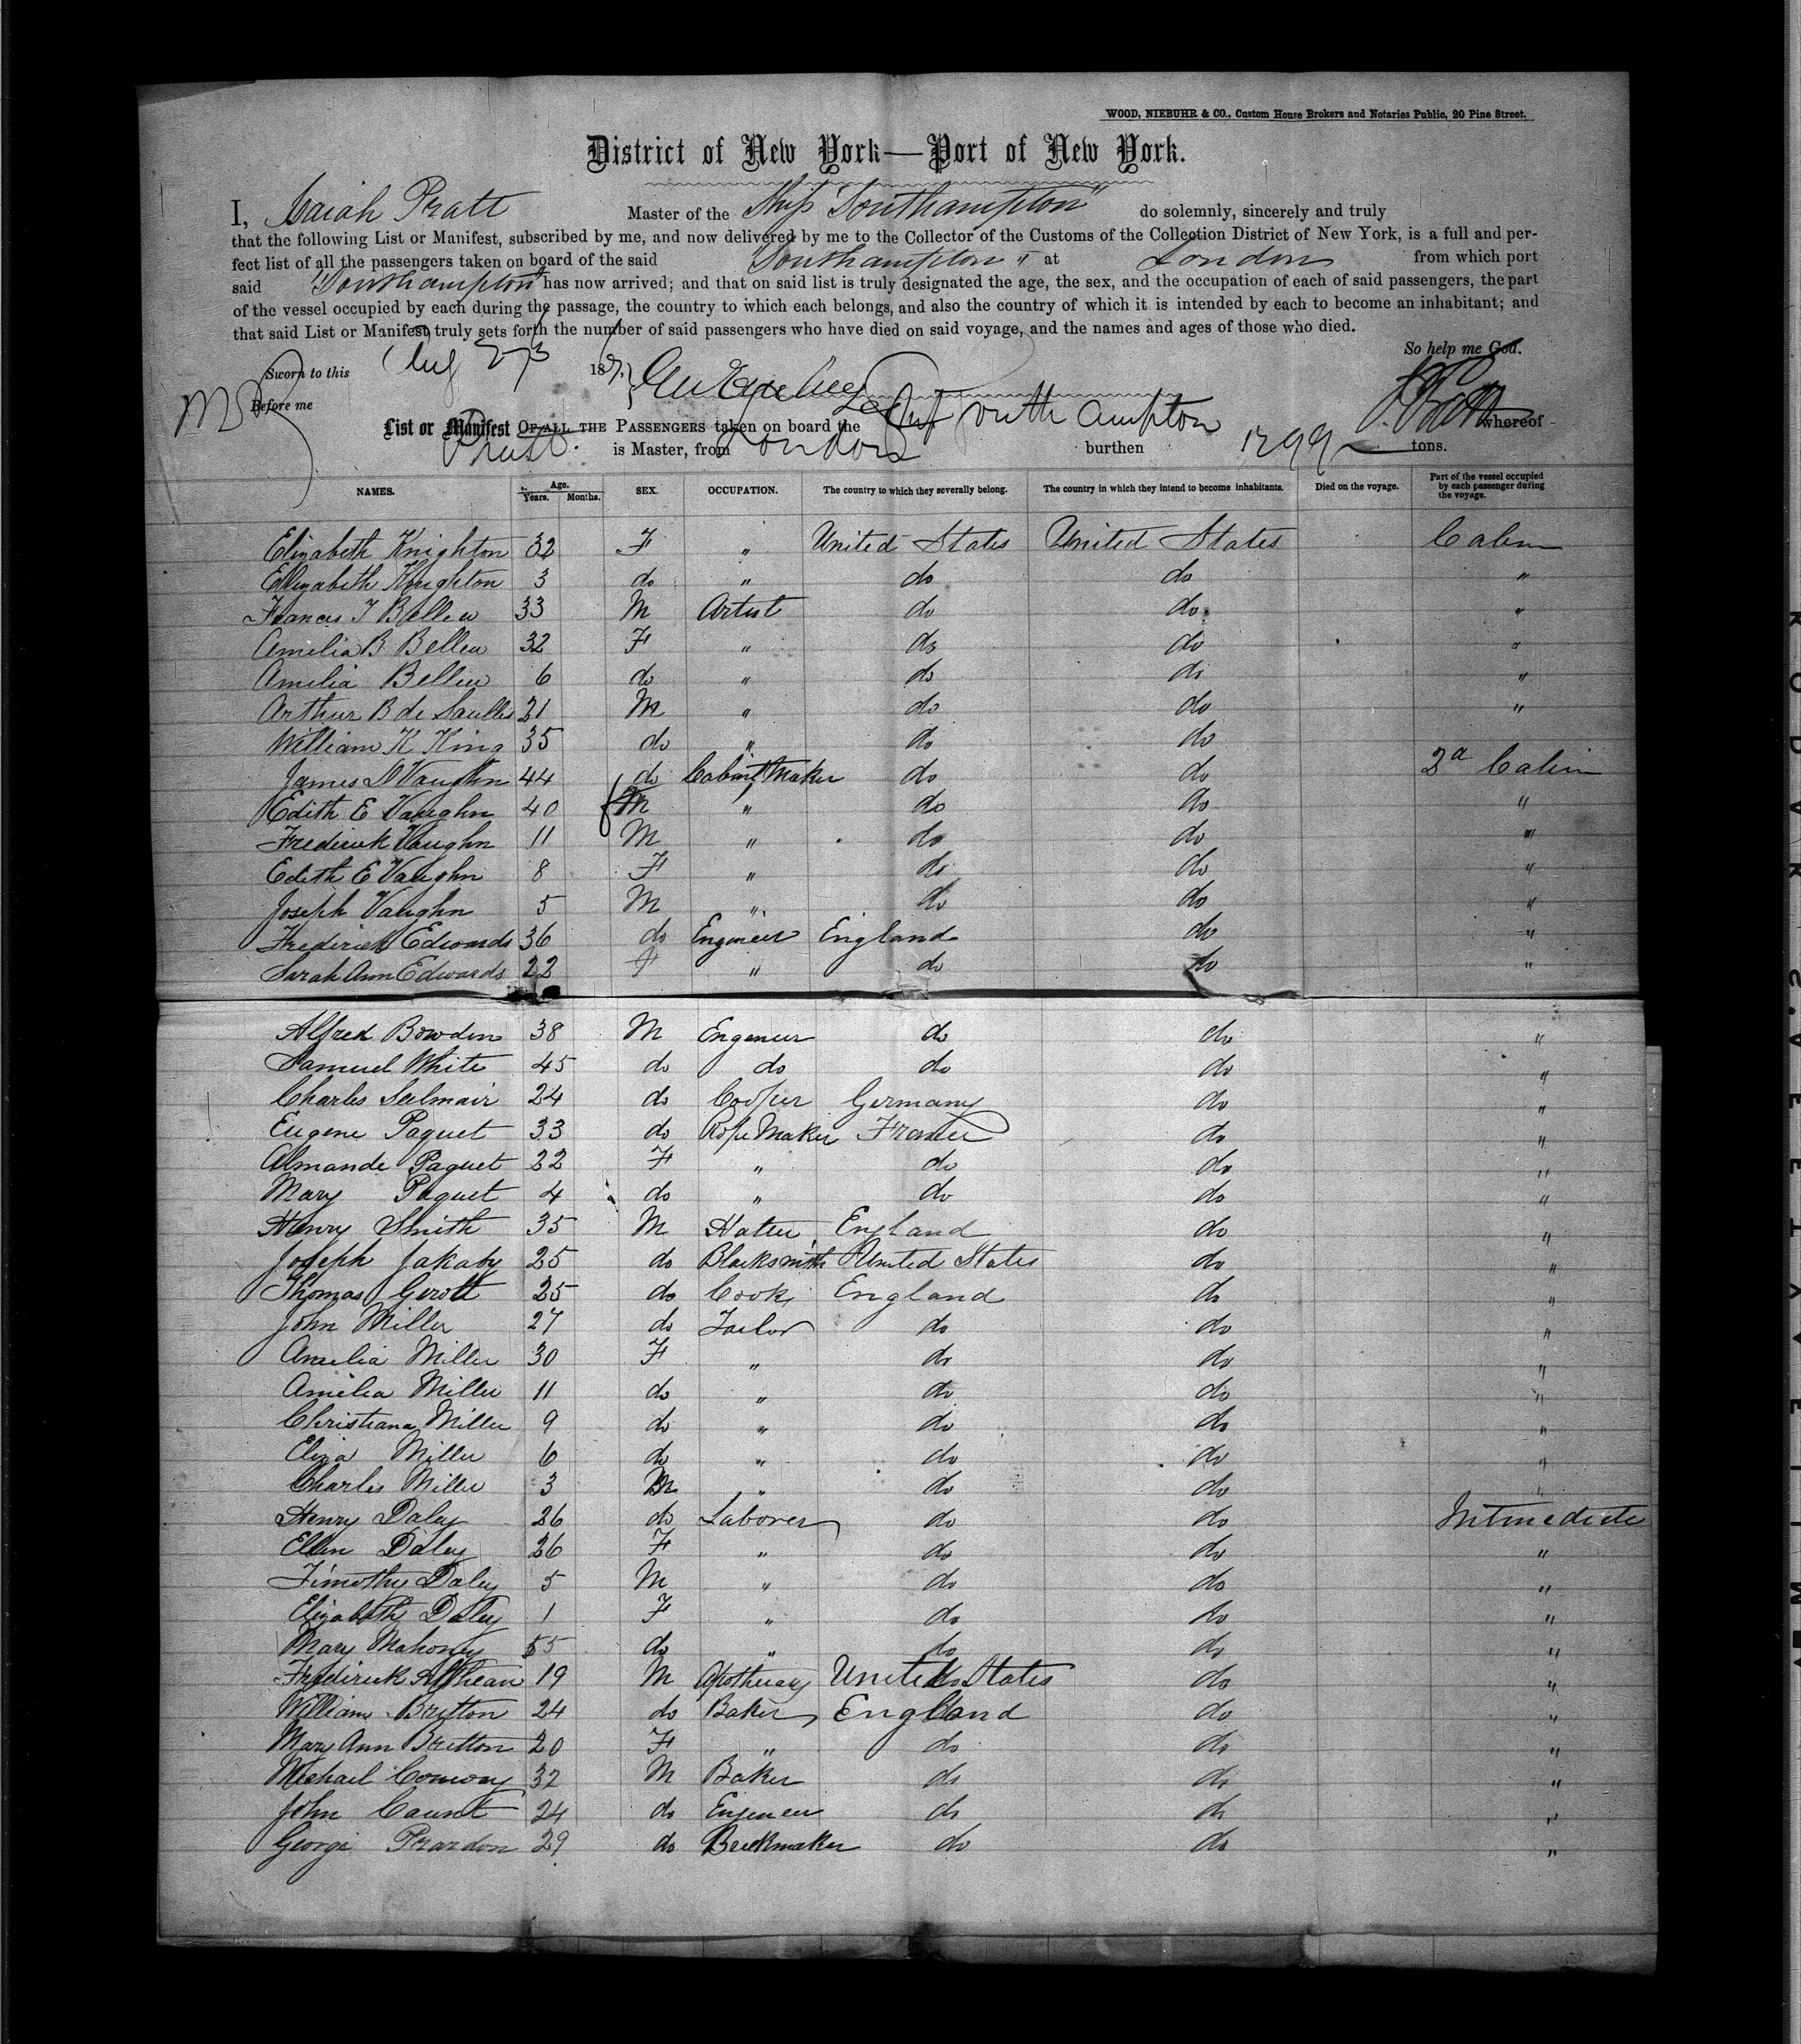 WOOD, NIEBUHR & CO., Custom House Brokers and Notaries Public, 20 Pine Street.
District of New York—Port of New York.
I, Isaiah Pratt Master of the Ship "Southampton" do solemnly, sincerely and truly
that the following List or Manifest, subscribed by me, and now delivered by me to the Collector of the Customs of the Collection District of New York, is a full and per-
fect list of all the passengers taken on board of the said "Southampton" at London from which port
said "Southampton" has now arrived; and that on said list is truly designated the age, the sex, and the occupation of each of said passengers, the part
of the vessel occupied by each during the passage, the country to which each belongs, and also the country of which it is intended by each to become an inhabitant; and
that said List or Manifest truly sets forth the number of said passengers who have died on said voyage, and the names and ages of those who died.
So help me God.
Sworn to this Aug 18
Before me
List or Manifest OF ALL THE PASSENGERS taken on board the Ship Southampton whereof
Pratt is Master, from London burthen 1299 tons.
NAMES. Age. Years. Months. SEX. OCCUPATION. The country to which they severally belong. The country in which they intend to become inhabitants. Died on the voyage. Part of the vessel occupied by each passenger during the voyage.
Elizabeth Knighton 32 F " United States United States Cabin
Elizabeth Knighton 3 do " do do "
Francis T Bellew 33 M Artist do do "
Amelia B Bellew 32 F " do do "
Amelia Bellew 6 do " do do "
Arthur B de Saulles 21 M " do do "
William K King 35 do " do do
James D Vaughn 44 do Cabinet Maker do do 2d Cabin
Edith E Vaughn 40 M " do do "
Frederick Vaughn 11 M " do do "
Edith E Vaughn 8 F " do do "
Joseph Vaughn 5 M " do do "
Frederick Edwards 36 do Engeneer England do "
Sarah Ann Edwards 22 F " do do "
Alfred Bowden 38 M Engeneer do do "
Samuel White 45 do do do do "
Charles Selmair 24 do Cooper Germany do "
Eugene Paquet 33 do Rope Maker France do "
Almande Paquet 22 F " do do "
Mary Paquet 4 do " do do "
Henry Smith 35 M Hatter England do "
Joseph Jakaby 25 do Blacksmith United States do "
Thomas Gerott 25 do Cook England do "
John Miller 27 do Tailor do do "
Amelia Miller 30 F " do do "
Amelia Miller 11 do " do do "
Christiana Miller 9 do " do do "
Eliza Miller 6 do " do do "
Charles Miller 3 M " do do "
Henry Daley 26 do Laborer do do Intmediate
Ellen Daley 26 F " do do "
Timothy Daley 5 M " do do "
Elizabeth Daley 1 F " do do "
Mary Mahoney 55 do " do do "
Frederick 19 M Apothecary United States do "
William Britton 24 do Baker England do "
Mary Ann Britton 20 F " do do "
Michael Conway 32 M Baker do do "
John Caunt 24 do Engeneer do do "
George Prardon 29 do Brickmaker do do "